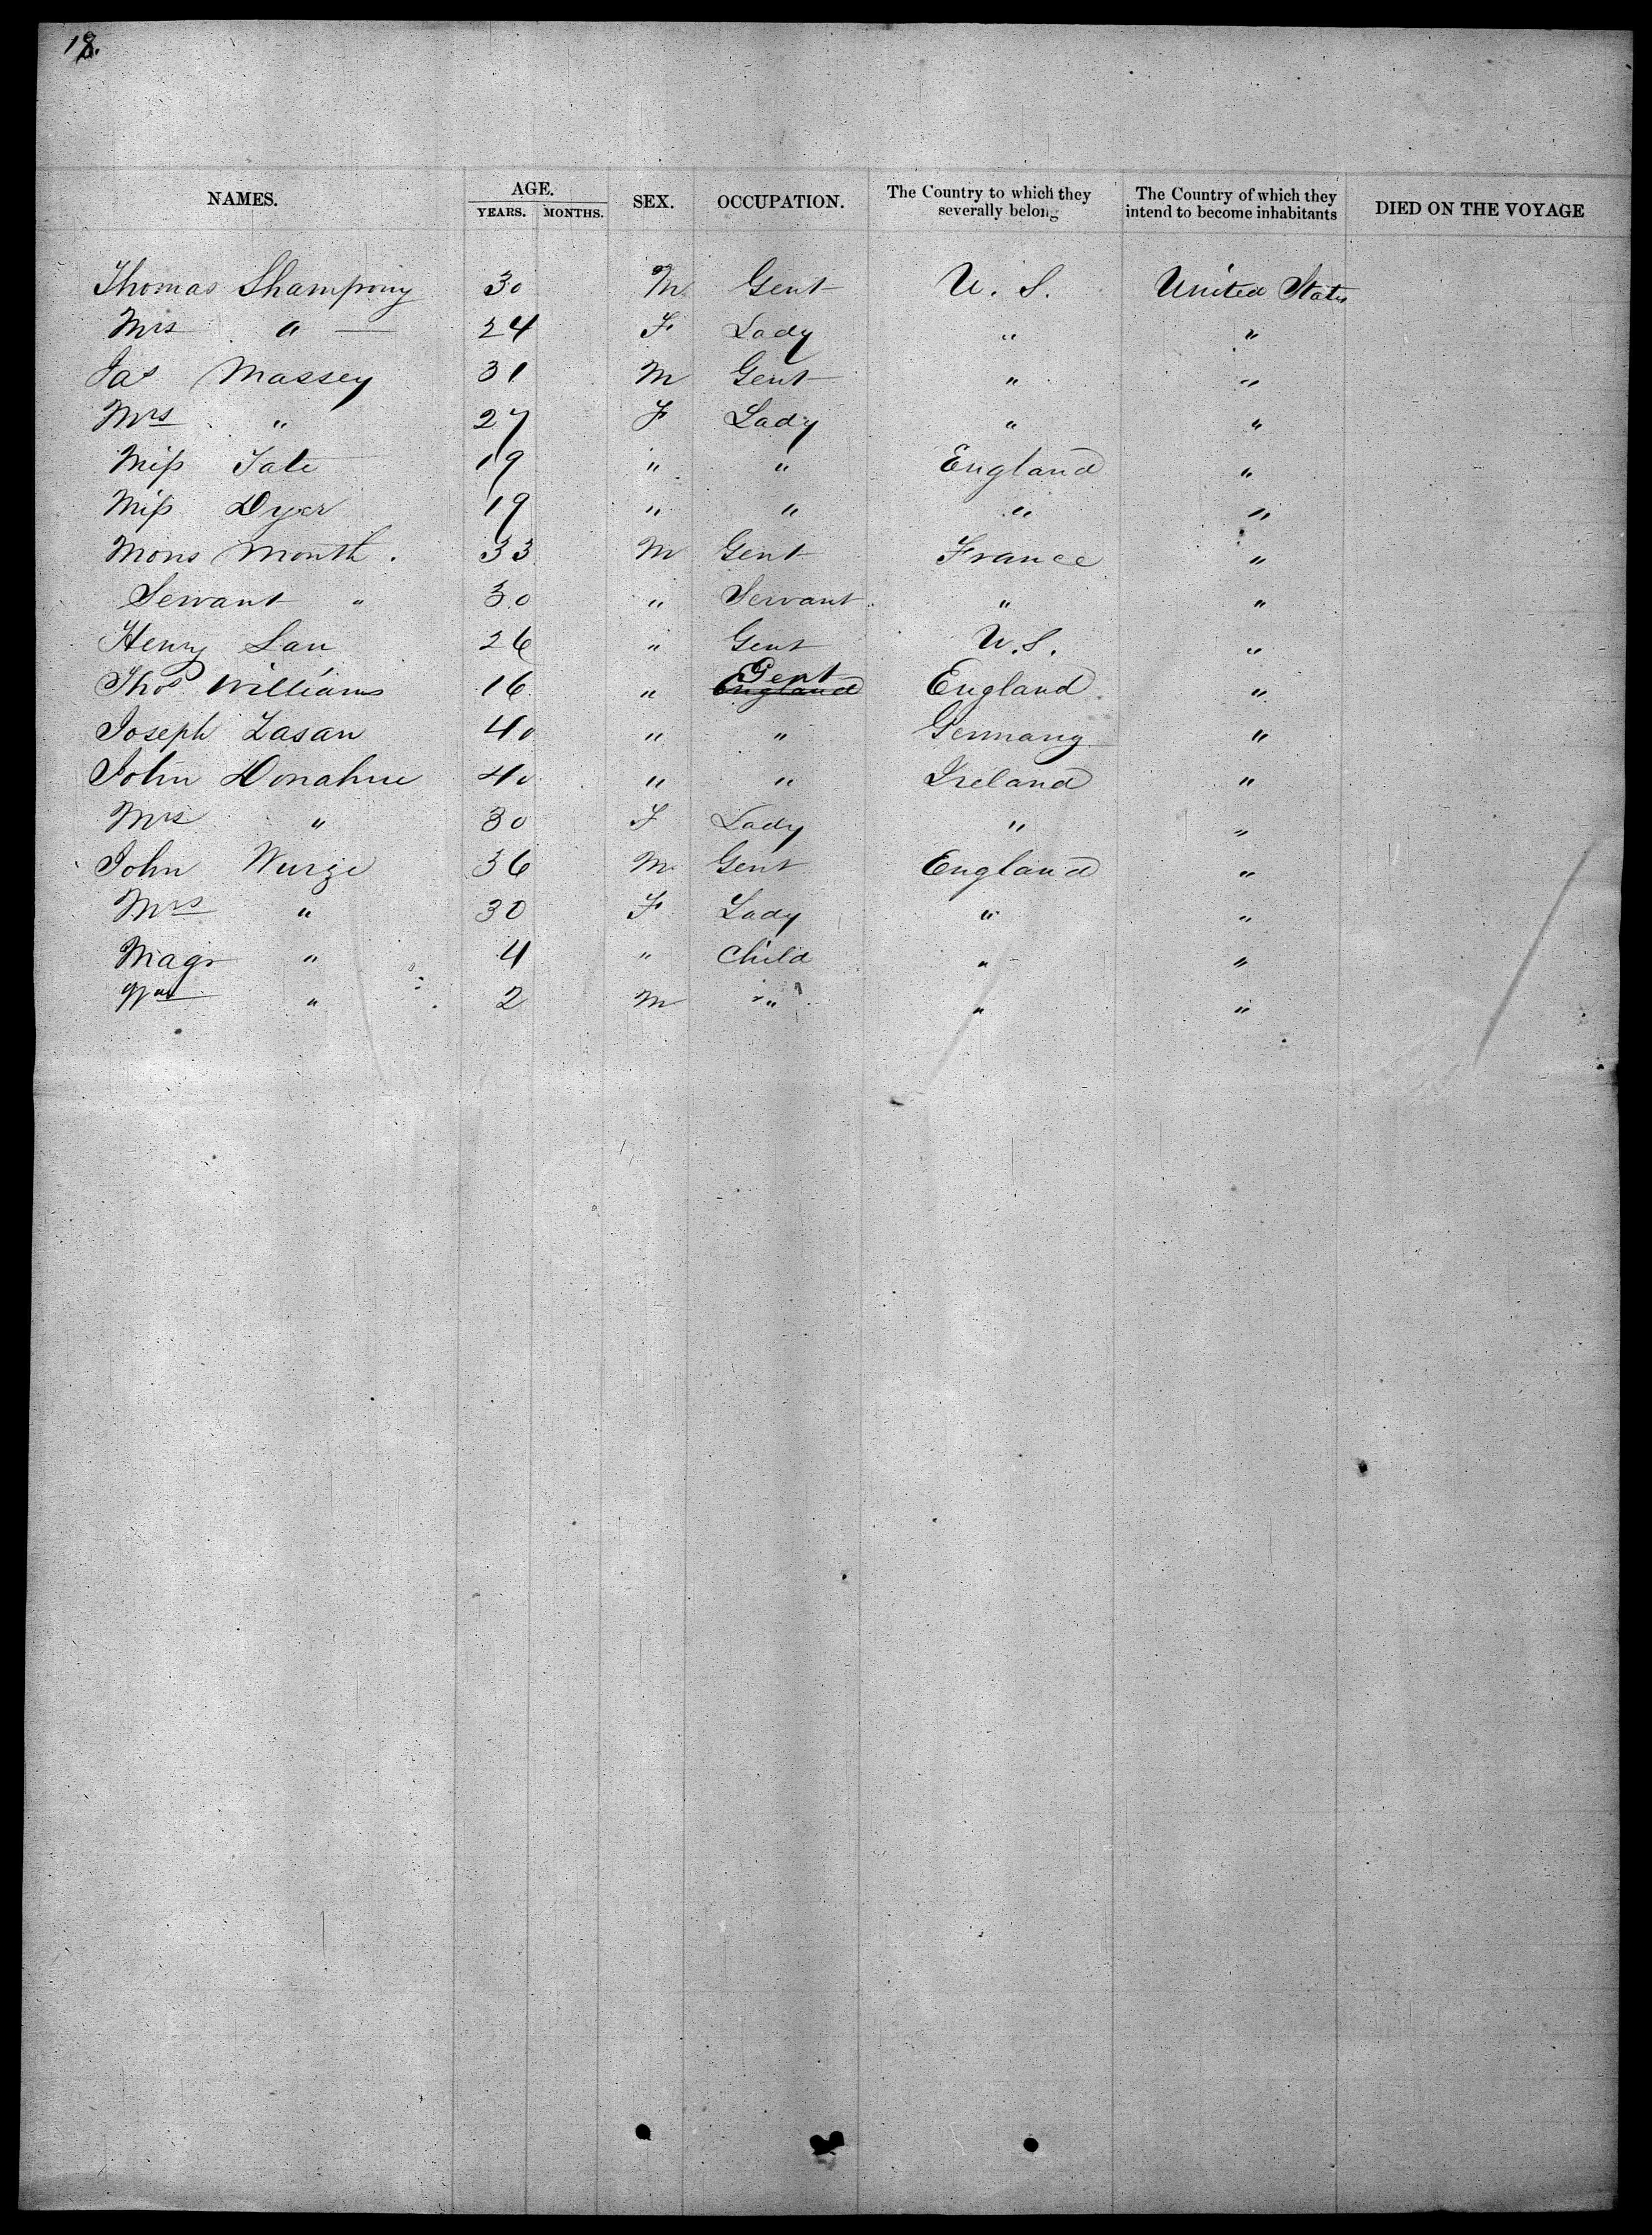 18.
NAMES. AGE. YEARS. MONTHS. SEX. OCCUPATION. The Country to which they severally belong The Country of which they intend to become inhabitants DIED ON THE VOYAGE
Thomas Shampony 30 M Gent U. S. United States
Mrs " — 24 F Lady " "
Jas Massey 31 M Gent " "
Mrs " 27 F Lady " "
Miss Tate 19 " " England "
Miss Dyer 19 " " " "
Mons Month. 33 M Gent France "
Servant " 30 " Servant " "
Henry Lan 26 " Gent U.S. "
Thos Williams 16 " England Gent England "
Joseph Lasan 40 " " Germany "
John Donahue 40 " " Ireland "
Mrs " 30 F Lady " "
John Wurge 36 M Gent England "
Mrs " 30 F Lady " "
Magr " 4 " Child " "
Wm " 2 M " " "